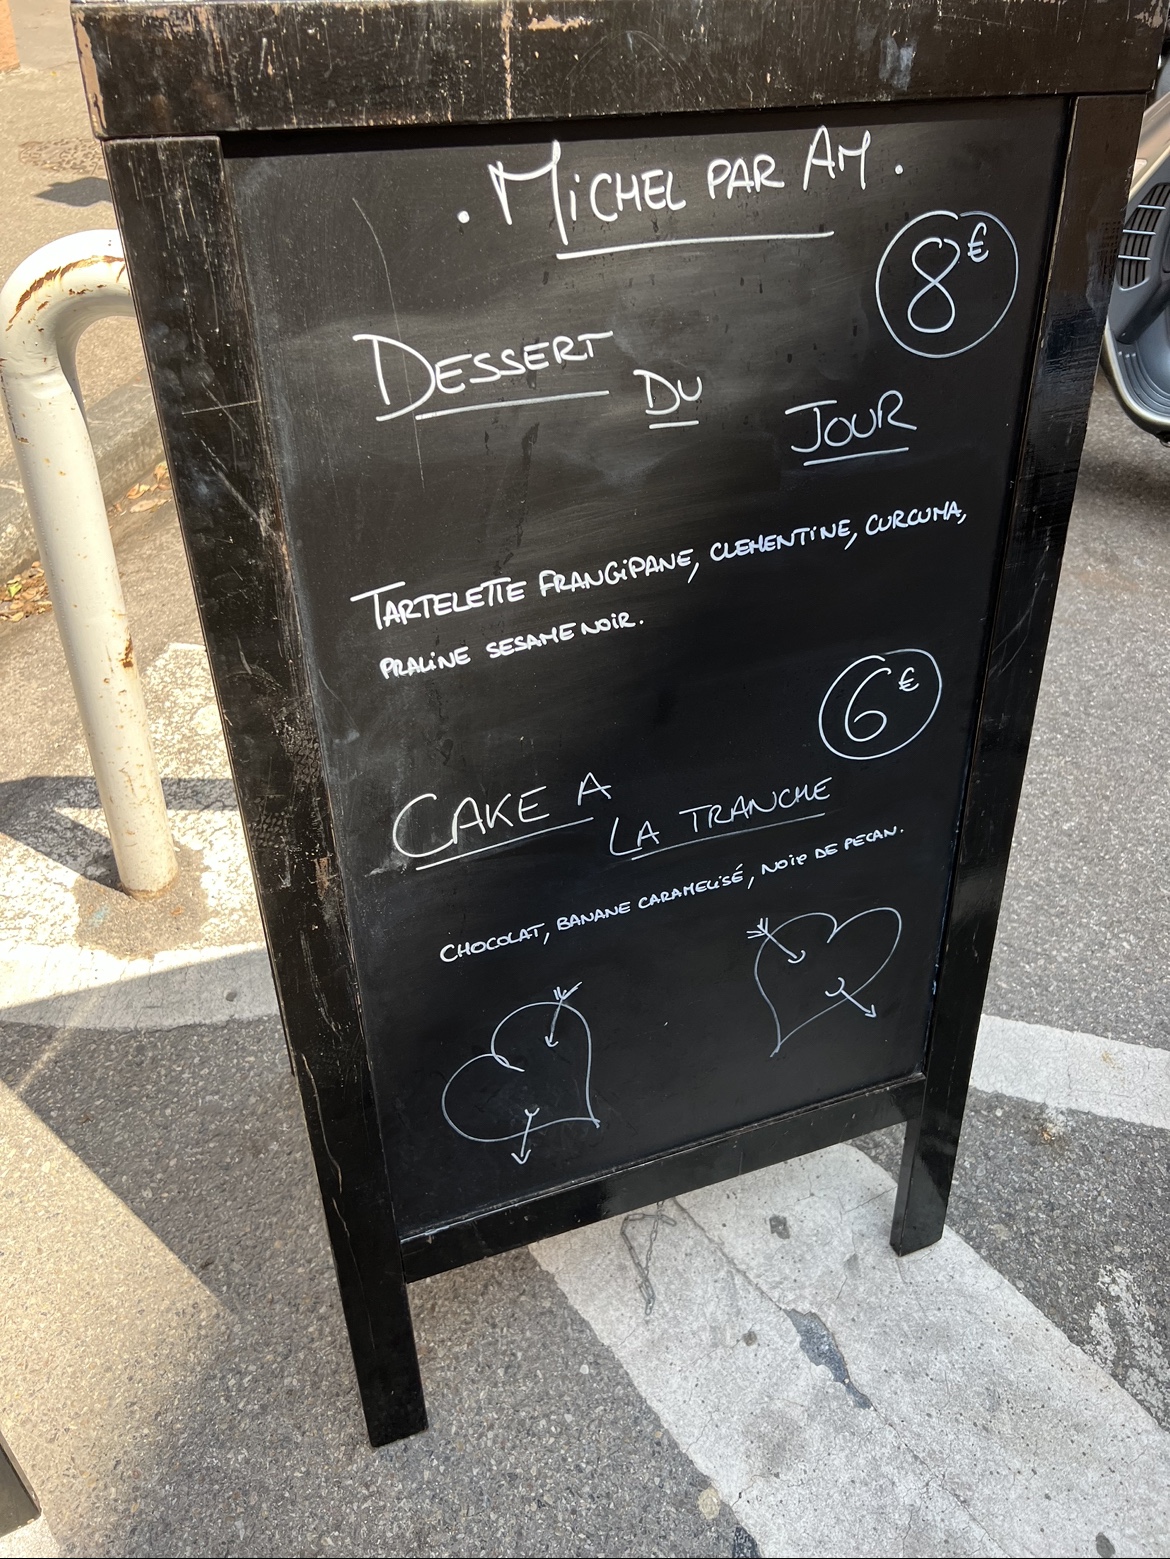 . MiCHEL PAR AM .
8€
DESSERT DU JOUR
TARTELETTE FRANGiPANE, CLEMENTiNE, CURCUMA,
PRALiNE SESAME NOiR.
6€
CAKE A LA TRANCHE
CHOCOLAT, BANANE CARAMELiSÉ, NOiX DE PECAN.